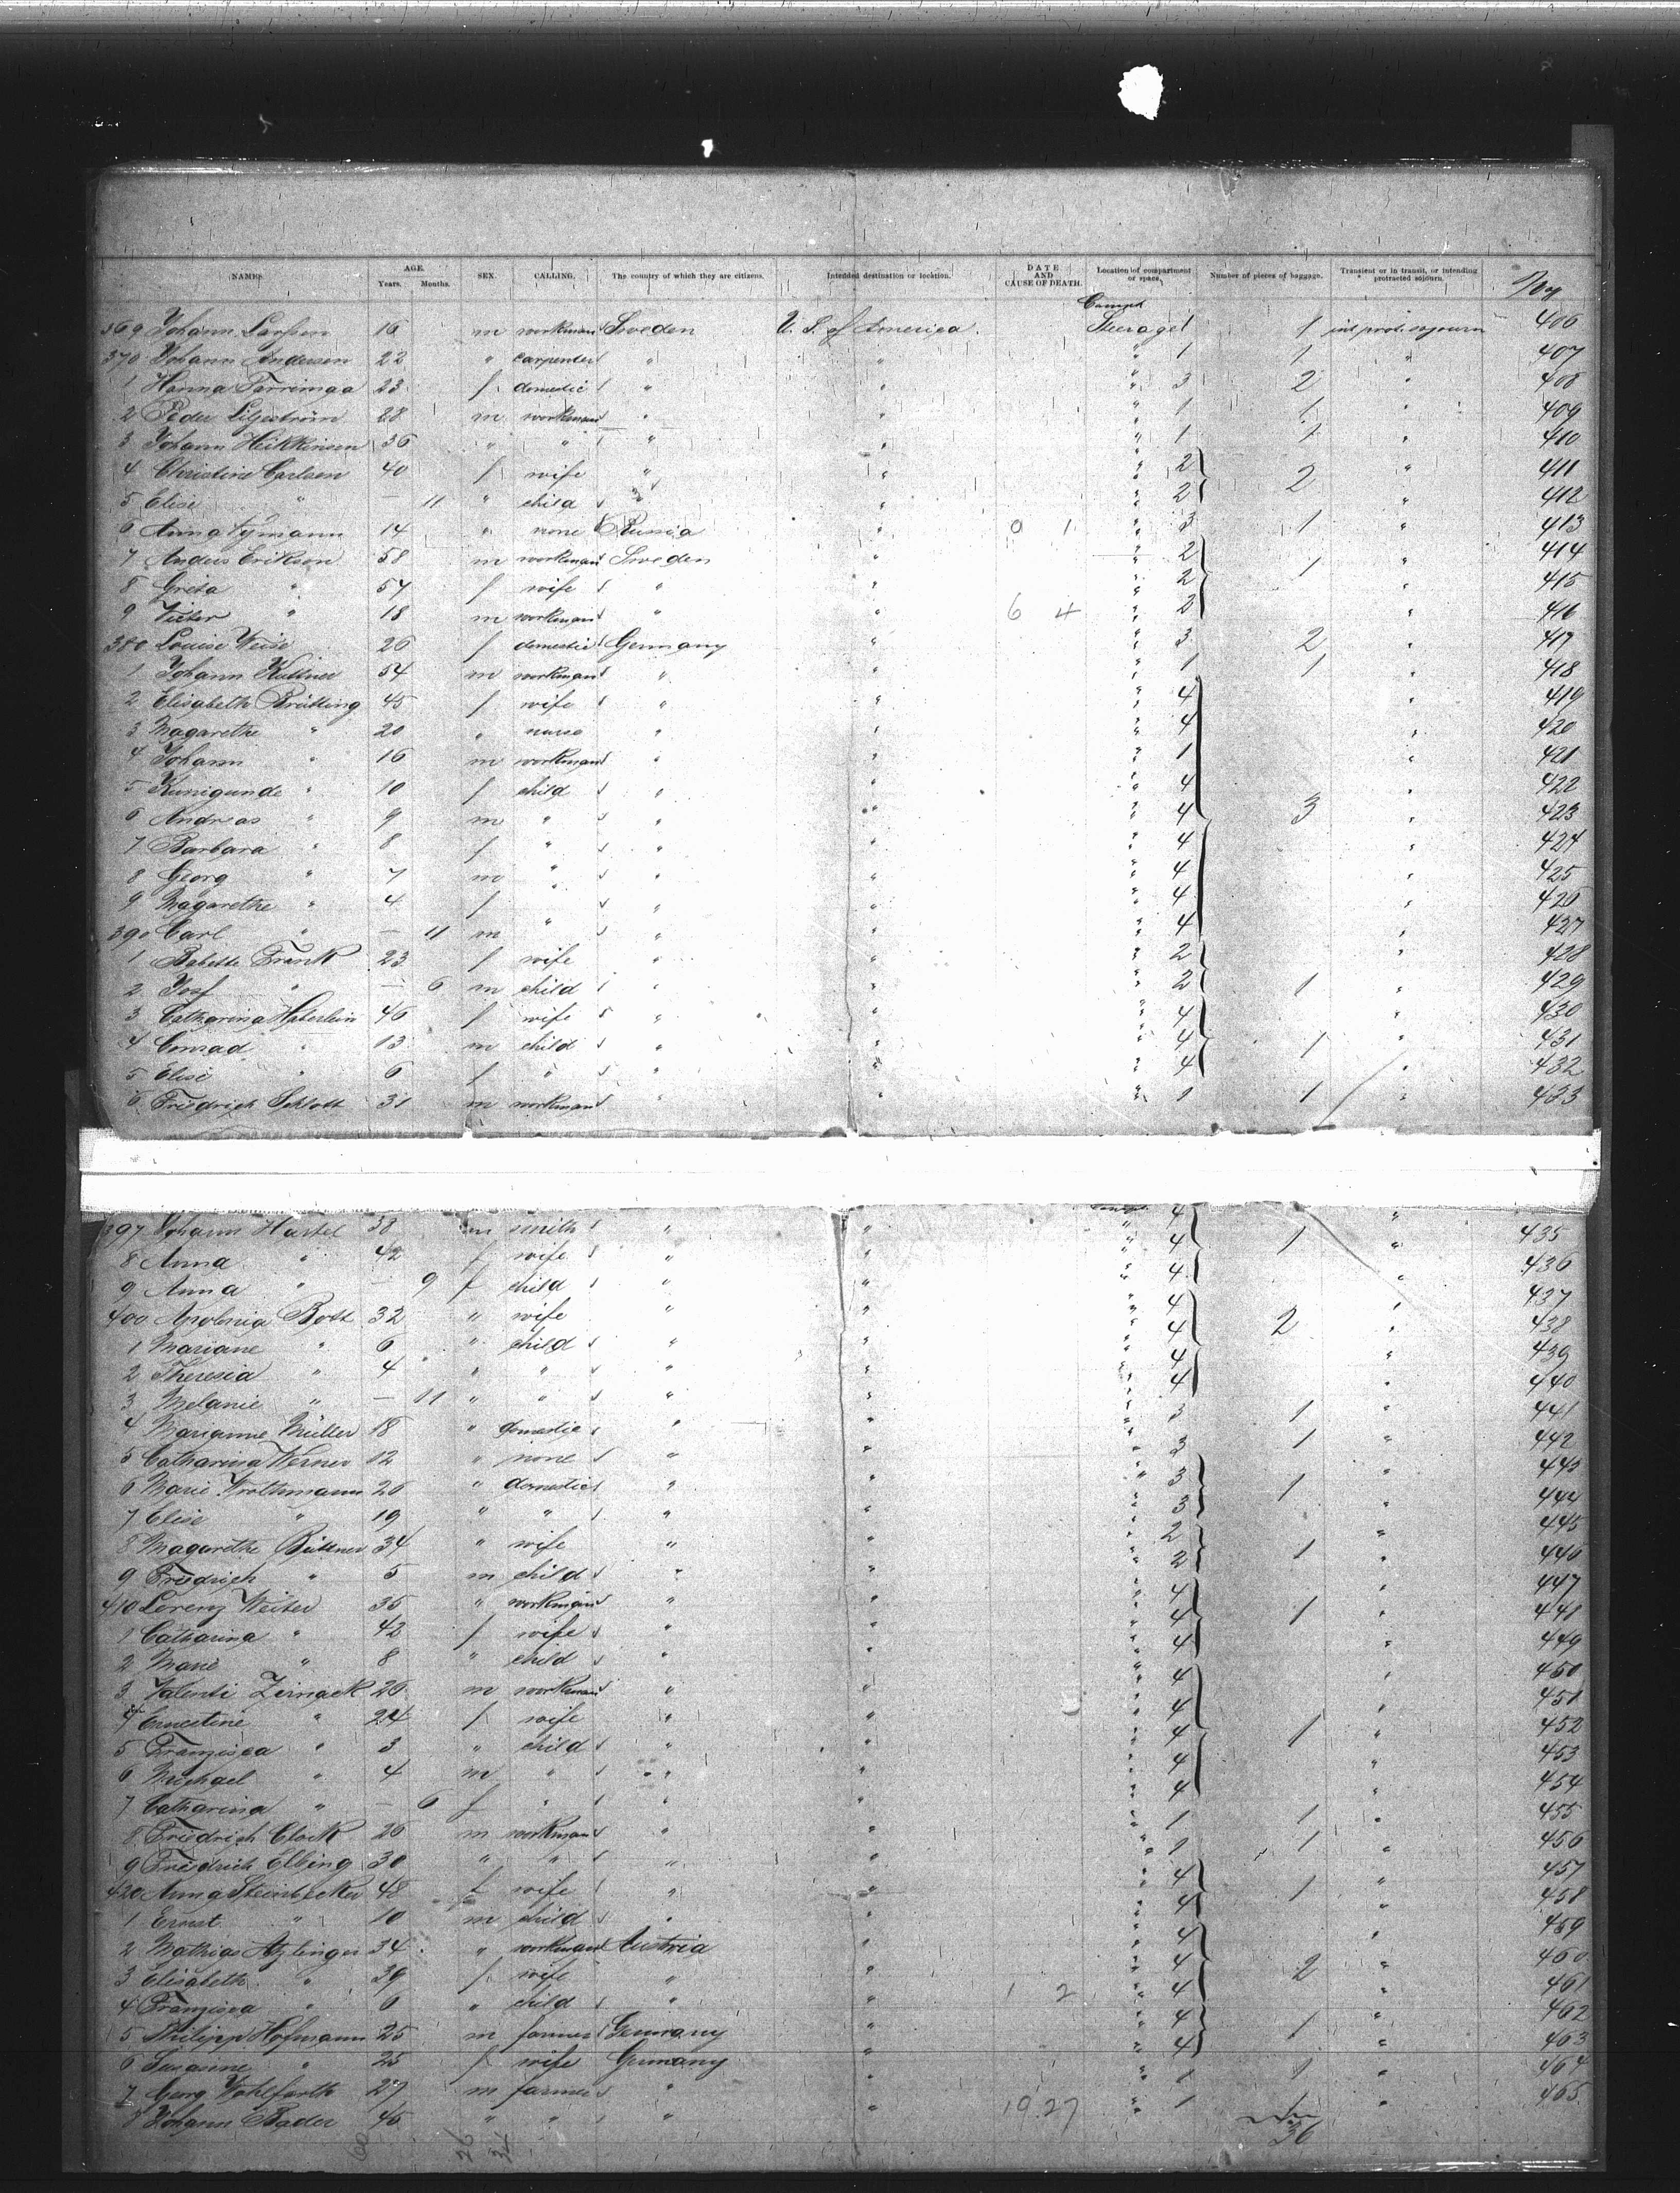 NAMES. AGE. Years. Months. SEX. CALLING. The country of which they are citizens. Intended destination or location. DATE AND CAUSE OF DEATH. Location of compartment or space. Number of pieces of baggage. Transient or in transit, or intending protracted sojourn.
369 Johann 16 m workman Sweden U. S. of America Steerage 1 1 int. prot. sojourn 406
370 Johann Andersen 22 " carpenter " " " 1 1 " 407
1 Hanna 23 f domestic " " " 3 2 " 408
2 Peder Liljeström 28 m workman " " " 1 1 " 409
3 Johann Heikkinen 36 " " " " " 1 1 " 410
4 Christine Carlson 40 f wife " " " 2 2 " 411
5 Elise " — 11 " child " " " 2 " 412
6 Anna 14 " none Russia " 0 1 " 3 1 " 413
7 Anders Erikson 58 m workman Sweden " " 2 1 " 414
8 Greta " 57 f wife " " " 2 " 415
9 Victor " 18 m workman " " 6 4 " 2 " 416
380 Louise Weise 26 f domestic Germany " " 3 2 " 417
1 Johann Küttner 54 m workman " " " 1 1 " 418
2 Elisabeth Brütting 45 f wife " " " 4 " 419
3 Magarethe " 20 " nurse " " " 4 " 420
4 Johann " 16 m workman " " " 1 " 421
5 Kunigunde " 10 f child " " " 4 " 422
6 Andreas " 9 m " " " " 4 3 " 423
7 Barbara " 8 f " " " " 4 " 424
8 Georg " 7 m " " " " 4 " 425
9 Magarethe " 4 f " " " 4 " 426
390 Carl " — 11 m " " " " 4 " 427
1 Babette Frank 23 f wife " " " 2 " 428
2 Josf " — 6 m child " " " 2 1 " 429
3 Catharina Haberlein 46 f wife " " " 4 " 430
4 Conrad " 13 m child " " " 4 1 " 431
5 Elise " 6 f " " " " 4 " 432
6 Friedrich Schlott 31 m workman " " " 1 1 " 433
397 Johann Hartel 38 m smith " " " 4 " 435
8 Anna " 42 f wife " " " 4 1 " 436
9 Anna " — 9 f child " " " 4 " 437
400 Apolonia Bott 32 " wife " " " 4 2 " 438
1 Mariane " 6 " child " " " 4 " 439
2 Theresia " 4 " " " " " 4 " 440
3 Melanie " — 11 " " " " " 4 " 441
4 Marianne Müller 18 " domestic " " " 3 1 " 442
5 Catharina Werner 12 " none " " " 3 1 " 443
6 Marie Trottmann 26 " domestic " " " 3 1 " 444
7 Elise " 19 " " " " " 3 " 445
8 Magarethe Büttner 34 " wife " " " 2 1 " 446
9 Friedrich " 5 m child " " " 2 " 447
410 Lorenz Weiter 35 " workman " " " 4 1 " 448
1 Catharina " 42 f wife " " " 4 " 449
2 Marie " 8 " child " " " 4 " 450
3 Valenti Zernack 26 m workman " " " 4 " 451
4 Ernestine " 24 f wife " " " 4 1 " 452
5 Franzisca " 3 " child " " " 4 " 453
6 Michael " 4 m " " " " 4 " 454
7 Catharina " — 6 f " " " " 4 " 455
8 Friedrich Clock 26 m workman " " " 1 1 " 456
9 Friedrich Elbing 30 " " " " " 1 1 " 457
420 Anna Steinbecker 48 f wife " " " 4 1 " 458
1 Ernst " 10 m child " " " 4 " 459
2 Mathias Atzlinger 34 " workman Austria " " 4 " 460
3 Elisabeth " 39 f wife " " " 4 2 " 461
4 Franzisca " 6 " child " " 1 2 " 4 " 462
5 Philipp Hofmann 25 m farmer Germany " " 4 1 " 463
6 Susanne " 25 f wife Germany " " 4 " 464
7 Georg Wohlfarth 27 m farmer " " " 1 1 " 465
8 Johann Bader 45 " " " " 19 27 " 1 1 "
60 26 34 36